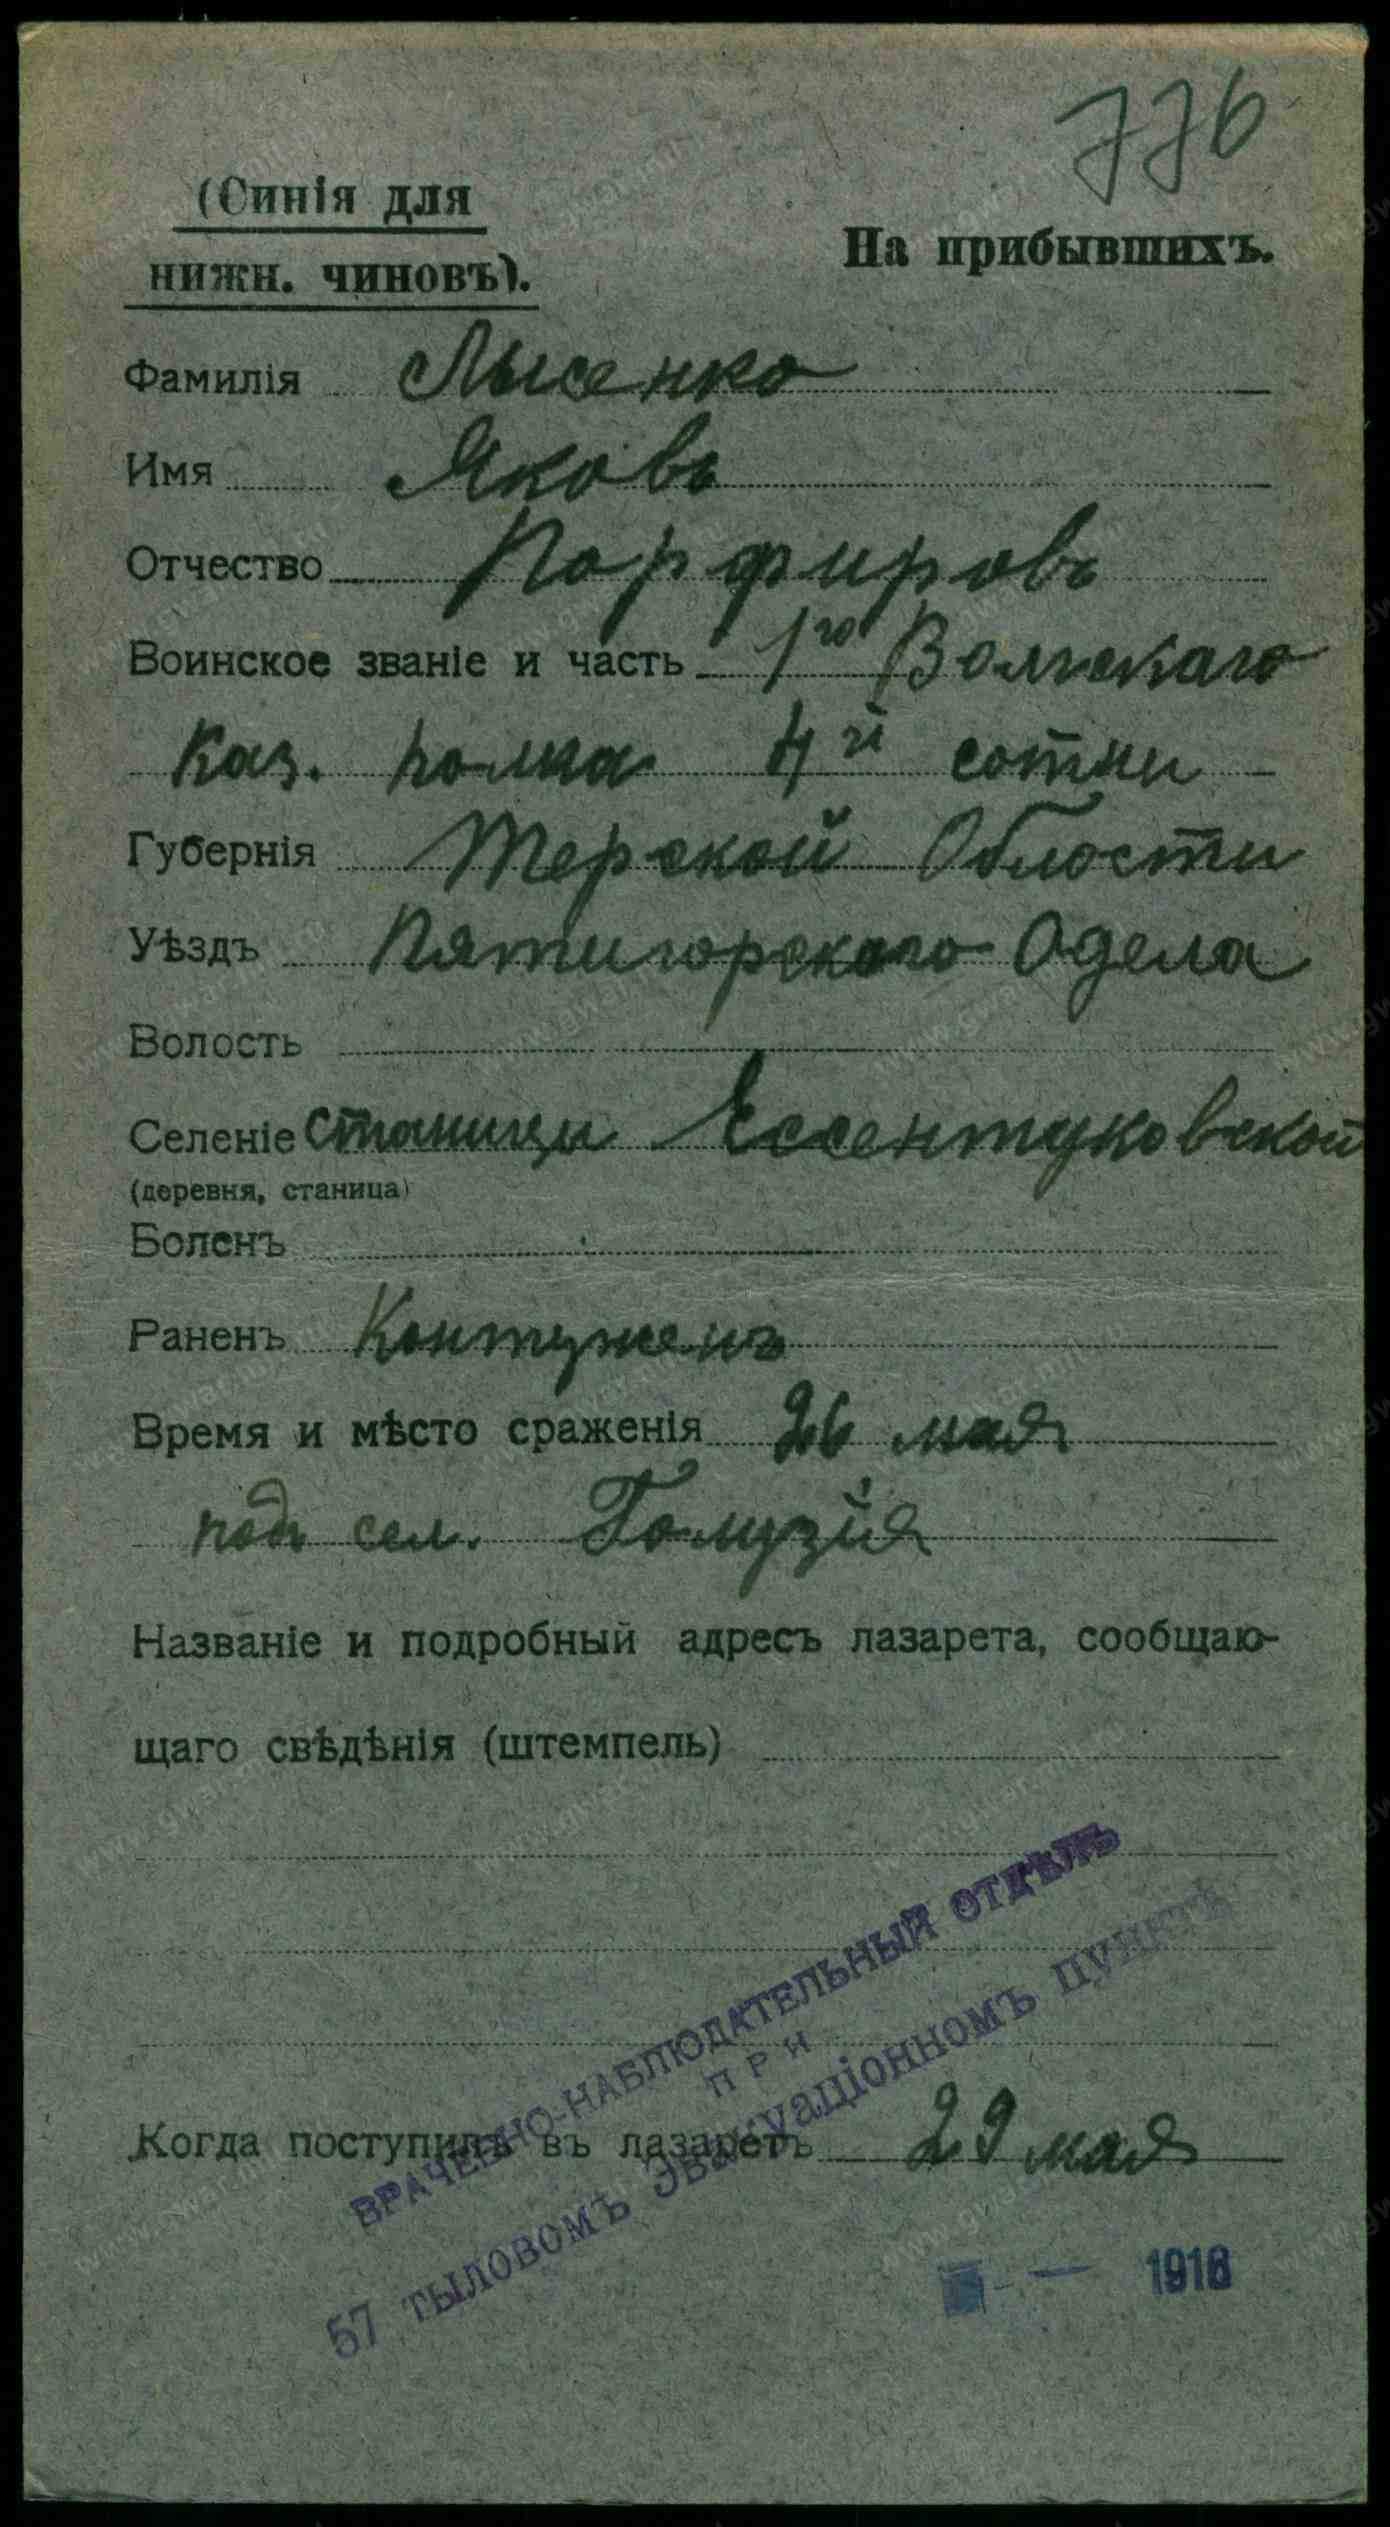 776
(Синія для
нижн. чиновъ).
На прибывшихъ.
Фамилія Лысенко
Имя Яковъ
Отчество Порфировъ
Воинское званіе и часть 1го Волжскаго
Каз. полка 4й сотни
Губернія Терской Области
Уѣздъ Пятигорскаго Одела
Волость
Селеніе станицы Ессентуковской
(деревня, станица)
Боленъ
Раненъ Контуженъ
Время и мѣсто сраженія 26 мая
под сел. Гомузія
Названіе и подробный адресъ лазарета, сообщаю-
щаго свѣдѣнія (штемпель)
ВРАЧЕБНО-НАБЛЮДАТЕЛЬНЫЙ ОТДѢЛЪ
ПРИ
57 ТЫЛОВОМЪ ЭВАКУАЦІОННОМЪ ПУНКТѢ
Когда поступилъ въ лазаретъ 29 мая
1916